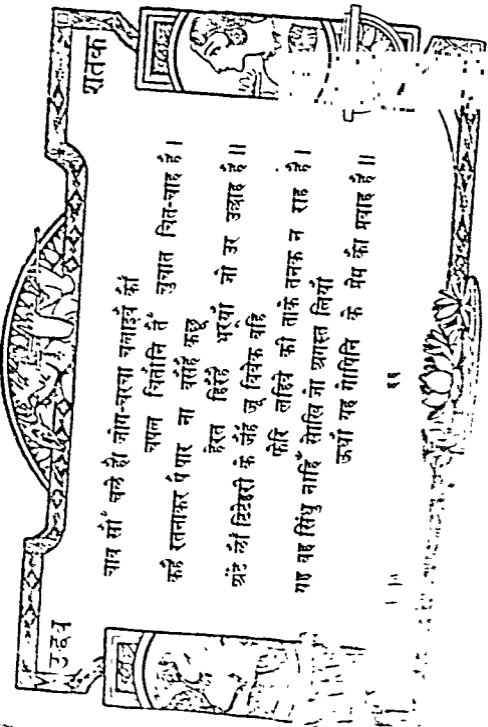 उद्धव शतक
चाव सौं चले हौ जोग-चरचा चलाइबै कौं
चपल चितौनि तैं चुचात चित-चाह है ।
कहै रतनाकर पै पार ना बसैहै कछू
हेरत हिरैहै भर्‌यौ जो उर उछाह है ॥
अंडे लौं टिटेहरी के जैहै जू बिबेक बहि
फेरि लहिबे की ताके तनक न राह है ।
यह वह सिंधु नाहिं सोखि जो अगस्त लियौ
ऊधौ यह गोपिनि के प्रेम कौ प्रवाह है ॥